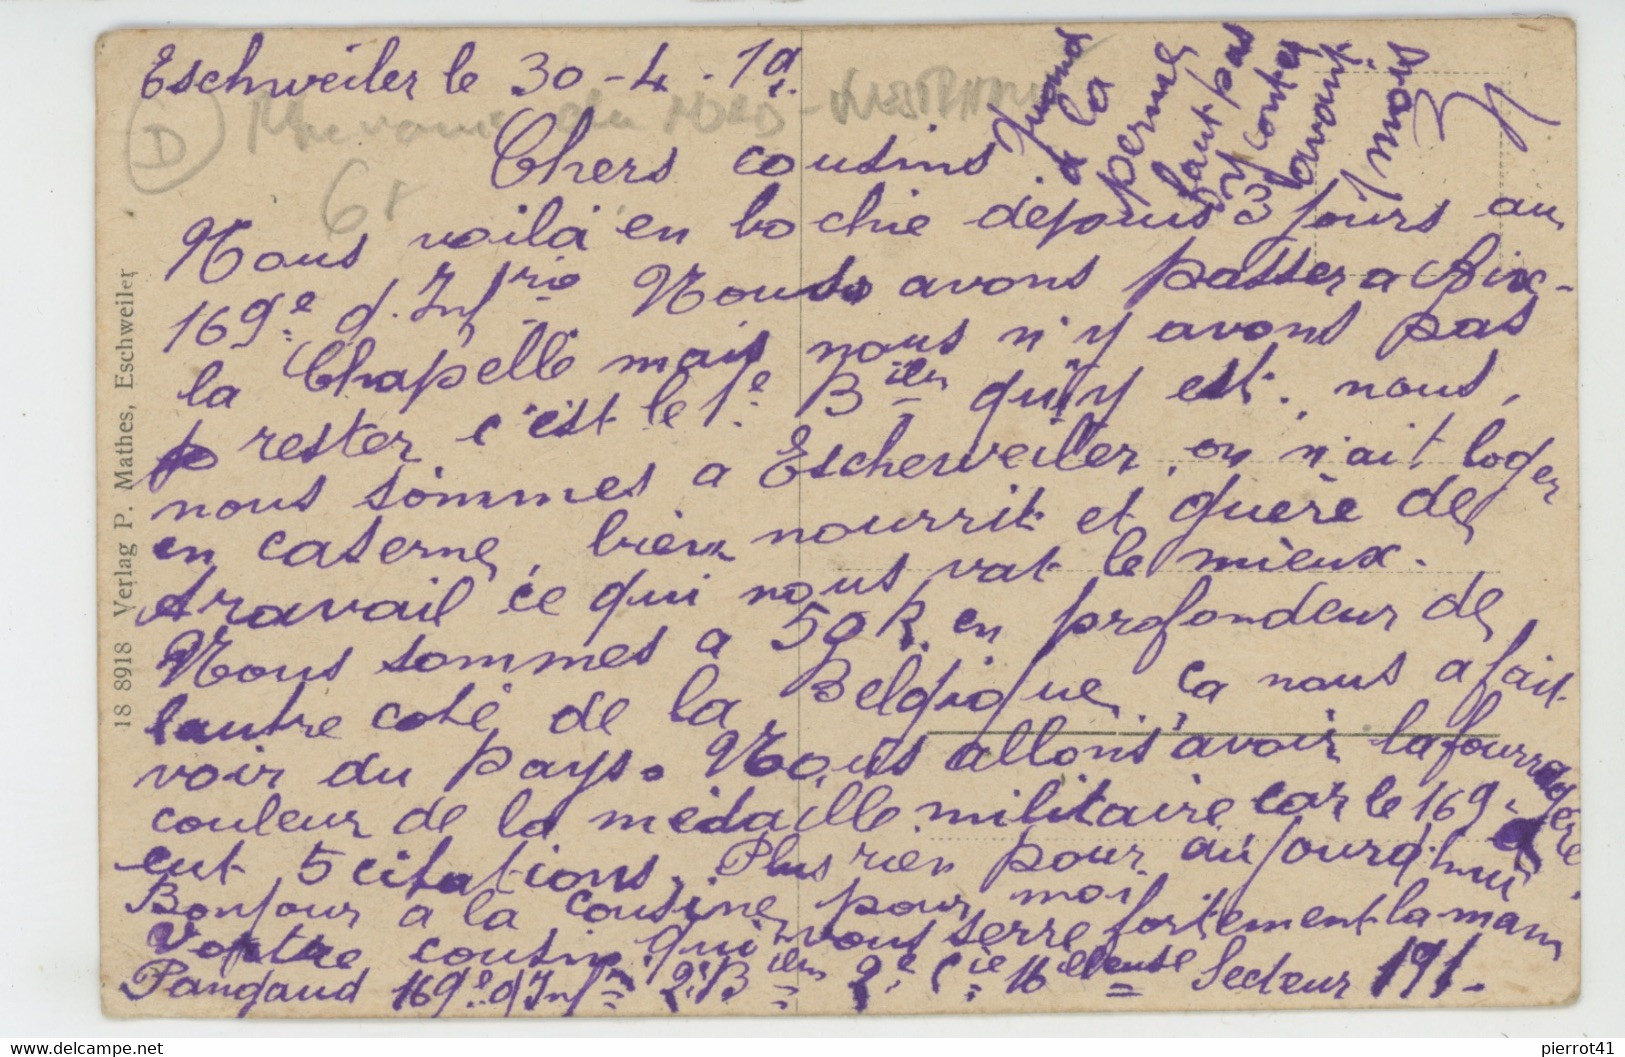 Eschweiler le 30-4.19.
D
6f
Chers cousins
Nous voila en bochie dépuis 3 jours au
169e d. Infrie Nous avons passer a Aix-
la Chapelle mais nous n'y avons pas
p rester c'est le 1e Bien qui y est. nous,
nous sommes a Escherweiler, on n'ait loger
en caserne, bien nourrit et guère de
travail ce qui nous vat le mieux.
Nous sommes a 59 K. en profondeur de
lautre coté de la Belgique, ça nous a fait
voir du pays. Nous allons avoir la fourragère
couleur de la médaille militaire car le 169e
eut 5 citations. Plus rien pour aujourd'hui
Bonjour a la cousine, pour moi
Vottre cousin qui vous serre fortement la main
Pangaud 169e d'Infie 2e Bien 2e Cie Mitlleuse Secteur 191.
Quand
a la
perme
faut pas
y conter
avant
1 mois
18 8918 Verlag P. Mathes, Eschweiler
delcampe.net
pierrot41